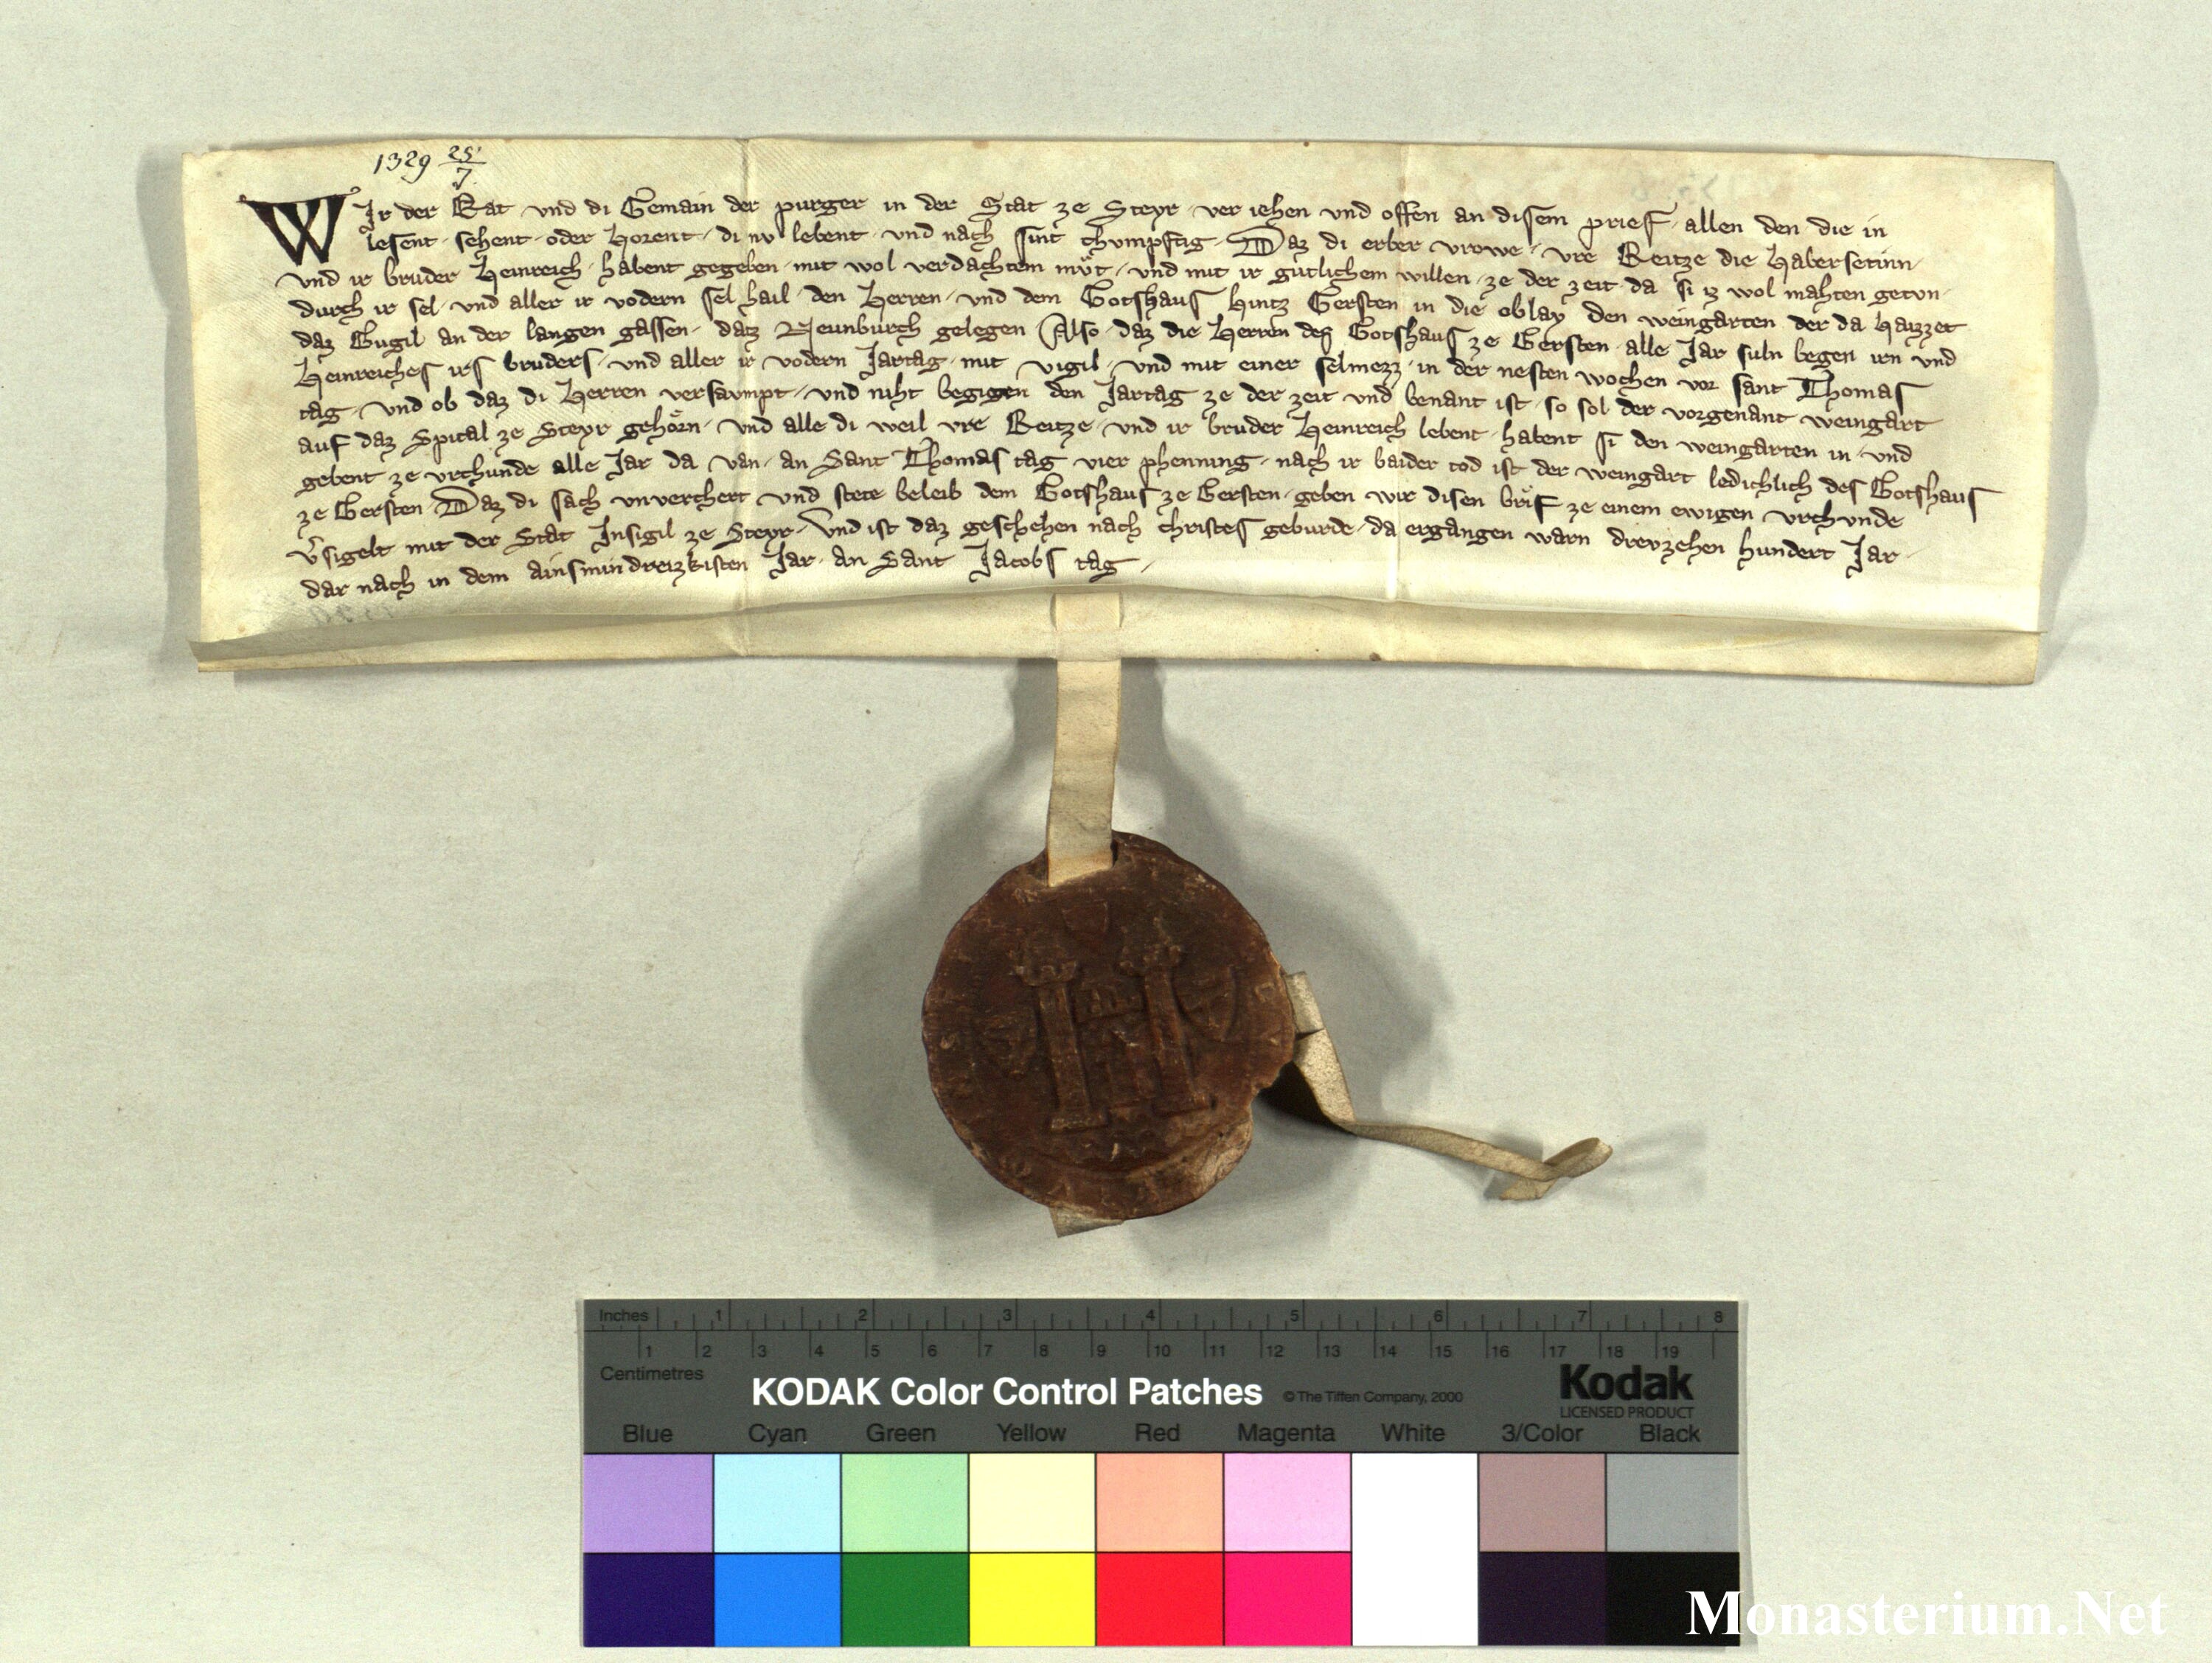 1329 25/7
WIr der Rat und di Gemain der purger in der Stat ze Steyr ver iehen und offen an disem prief allen den die in
lesent sehent oder horent di nv lebent und nach sint chvmpftig Daz di erber vrowe vre Reitze die Habersetinn
und ir bruder Heinreich habent gegeben mit wol verdachtem mvͦt und mit ir gutlichem willen ze der zeit da si iz wol mahten getvn
durch ir sel und aller ir vodern sel hail den Herren und dem Gotshaus hintz Gersten in die oblay den weingarten der da haizzet
daz Gugil an der langen gassen datz Neunburch gelegen Also daz die Herren des Gotshaus ze Gersten alle Jar suln begen irn und
Heinreiches irs bruders und aller ir vodern Jartag mit vigil und mit einer selmezz in der nesten wochen vor sant Thomas
tag und ob daz di Herren versavmpt und niht begigen den Jartag ze der zeit und benant ist so sol der vorgenant weingart
auf daz Spital ze Steyr gehoͤrn und alle di weil vre Reitze und ir bruder Heinreich lebent habent si den weingarten in und
gebent ze vrchunde alle Jar da van an Sant Thomas tag vier phenning nach ir baider tod ist der weingart ledichlich des Gotshaus
ze Gersten Daz di sach vnverchert und stete beleib dem Gotshaus ze Gersten geben wir disen brif ze einem ewigen vrchvnde
v̓sigelt mit der Stat Insigil ze Steyr Vnd ist daz geschehen nach christes geburde da ergangen warn drevzehen hundert Jar
dar nach in dem ainsmindreizkisten Jar an Sant Jacobs tag
Inches 1 2 3 4 5 6 7 8
1 2 3 4 5 6 7 8 9 10 11 12 13 14 15 16 17 18 19
Centimetres
KODAK Color Control Patches © The Tiffen Company, 2000
Kodak
LICENSED PRODUCT
Blue Cyan Green Yellow Red Magenta White 3/Color Black
Monasterium.Net